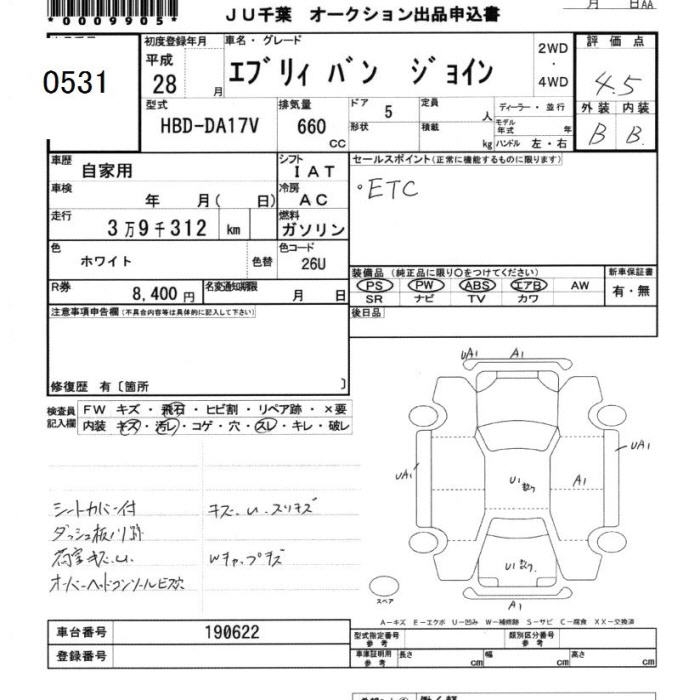 *0009905*
JU千葉 オークション出品申込書
月 日AA
0531
初度登録年月
平成
28 月
車名・グレード
エブリィ バン ジョイン
2WD
・
4WD
評価点
4.5
外装 内装
B B
型式
HBD-DA17V
排気量
660
cc
ドア 5
形状
定員 人
積載 kg
ディーラー・並行
モデル年式 年
ハンドル 左・右
車歴
自家用
シフト
IAT
車検
年 月( 日)
冷房
AC
走行
3万9千312 km
燃料
ガソリン
色
ホワイト
色替
色コード
26U
R券
8,400円
名変通知期限
月 日
セールスポイント(正常に機能するものに限ります)
・ETC
装備品 (純正品に限り○をつけてください)
PS PW ABS エアB AW
SR ナビ TV カワ
新車保証書
有・無
後日品
注意事項申告欄(不具合内容等は具体的に記入して下さい)
修復歴 有〔箇所 〕
検査員
記入欄
FW キズ・飛石・ヒビ割・リペア跡・×要
内装 キズ・汚レ・コゲ・穴・スレ・キレ・破レ
シートカバー付
キズ.U.スリキズ
ダッシュ板ハリ跡
荷室キズ.U
Wチップキズ
オーバーヘッドコンソールビス穴
UA1 A1
UA1
UA1
U1散ク
A1
U1散ク.
A1
スペア
A-キズ E-エクボ U-凹み W-補修跡 S-サビ C-腐食 XX-交換済
車台番号
190622
登録番号
型式指定番号
参考
類別区分番号
参考
車庫証明用
参考
長さ cm
幅 cm
高さ cm